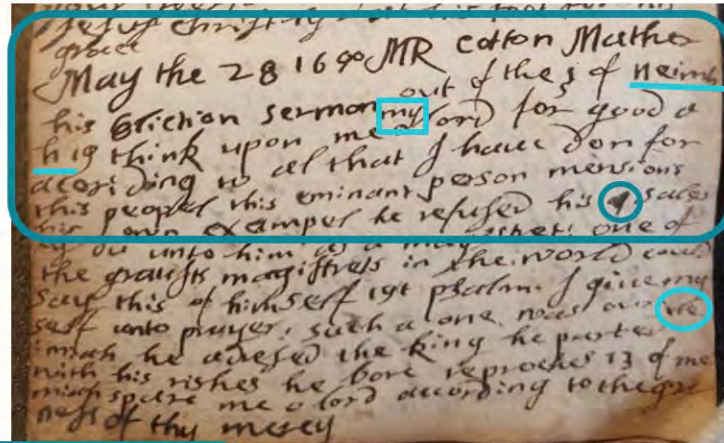 Jesus christ
grace
May the 28 1690 MR cotton Mather
his Eliction sermon out of the 5 of neimi
h 19 think upon me my lord for good a
according to al that I have don for
this peopel this eminant person mensions
his own exampel he refused his sales
unto him as a one of
the gratist magistrets in the world could
say this of himself 109 psalm. I give my
self unto prayer, such a one was our
he adresed the king he parted
with his rishes he bore reproches 13 of ne
spare me o lord according to the gre
ness of thy mercy